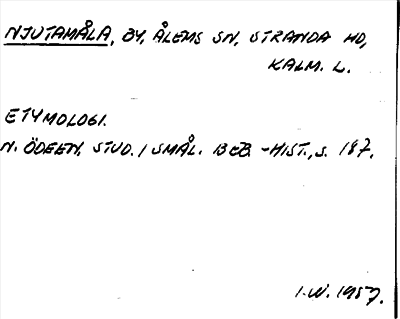 NJUTAMÅLA, BY, ÅLEMS SN, STRANDA HD,
KALM. L.
ETYMOLOGI.
N. ÖDEEN, STUD. I SMÅL. BEB.-HIST., S. 187.
I.W. 1957.